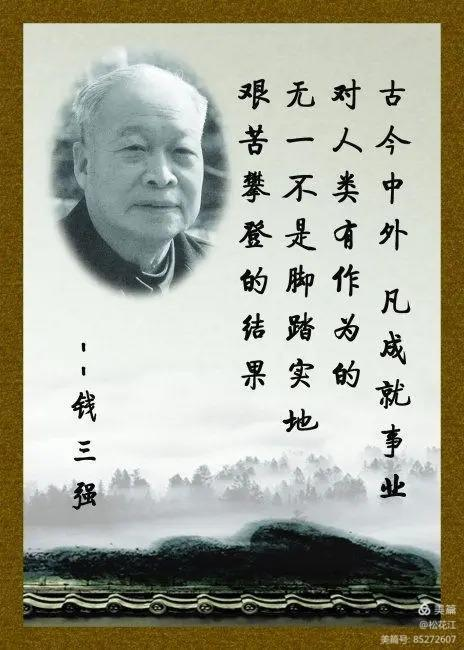 古今中外 凡成就事业
对人类有作为的
无一不是脚踏实地
艰苦攀登的结果
--钱三强
美篇
@松花江
美篇号: 85272607